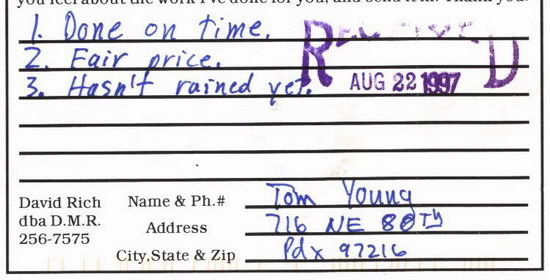 you feel about the work I've done for you, and send it in. Thank you.
1. Done on time.
2. Fair price.
3. Hasn't rained yet.
RECEIVED
AUG 22 1997
David Rich
dba D.M.R.
256-7575
Name & Ph.# Tom Young
Address 716 NE 80Th
City,State & Zip Pdx 97216